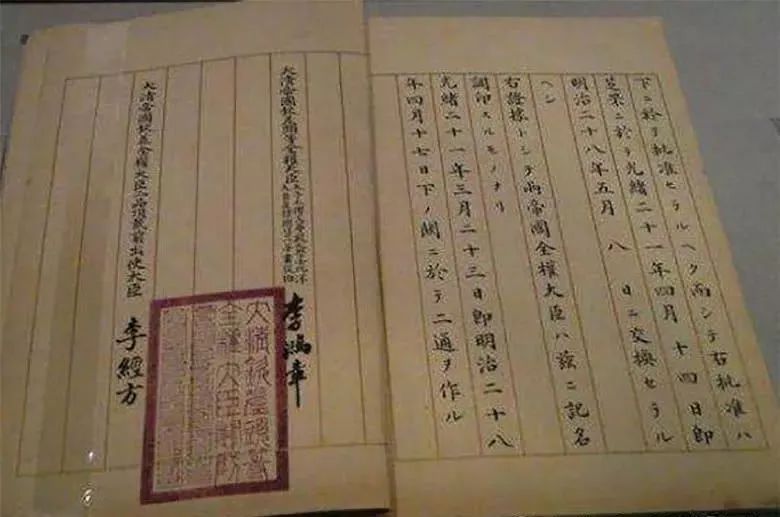 下ニ於テ批准セラルヘク而シテ右批准ハ
芝罘ニ於テ光緒二十一年四月十四日即
明治二十八年五月八日ニ交換セラル
ヘシ
右證據トシテ兩帝國全權大臣ハ茲ニ記名
調印スルモノナリ
光緒二十一年三月二十三日即明治二十八
年四月十七日下ノ關ニ於テ二通ヲ作ル
大清帝國欽差頭等全權大臣
李鴻章
大清帝國欽差全權大臣二品頂戴前出使大臣
李經方
大清欽差頭等
全權大臣關防